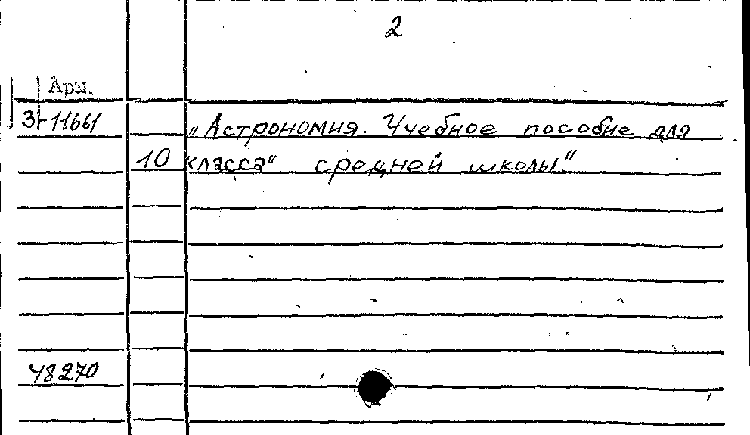 2
Арм.
3-11661
„Астрономия. Учебное пособие для
10 класса" средней школы."
48270